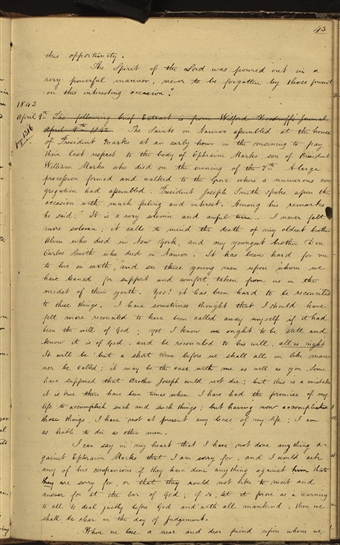 45
this opportunity.
The Spirit of the Lord was poured out in a
very powerful manner, never to be forgotten by those present
on this interesting occasion."
1842
April 9th The following brief Extract is from Wilford Woodruff's journal
April 9th 1842. The Saints in Nauvoo assembled at the house
of President Marks at an early hour in the morning to pay
their last respect to the body of Ephraim Marks son of President
William Marks who died on the evening of the 7th. A large
procession formed and walked to the grove where a numerous con
gregation had assembled. President Joseph Smith spoke upon the
occasion with much feeling and interest. Among his remarks
he said, "It is a very solemn and awful time. I never felt
more solemn; it calls to mind the death of my oldest brother
Alvin who died in New York, and my youngest brother Don
Carlos Smith who died in Nauvoo. It has been hard for me
to live on earth, and see these young men upon whom we
have leaned for support and comfort taken from us in the
midst of their youth. Yes: it has been hard to be reconciled
to these things. I have sometimes thought that I should have
felt more reconciled to have been called away myself if it had
been the will of God; yet I know we ought to be still and
know it is of God, and be reconciled to his will; all is right
It will be but a short time before we shall all in like manner
be called; it may be the case with me as well as you. Some
have supposed that Brother Joseph could not die; but this is a mistake
it is true there have been times when I have had the promise of my
life to accomplish such and such things; but having now accomplished
those things, I have not at present any lease of my life; I am
as liable to die as other men.
I can say in my heart that I have not done anything a-
gainst Ephraim Marks that I am sorry for, and I would ask
any of his companions if they have done anything against him that
they are sorry for, or that they would not like to meet and
answer for at the bar of God; if so, let it prove as a warning
to all to deal justly before God and with all mankind; then we
shall be clear in the day of judgement.
When we lose a near and dear friend upon whom we